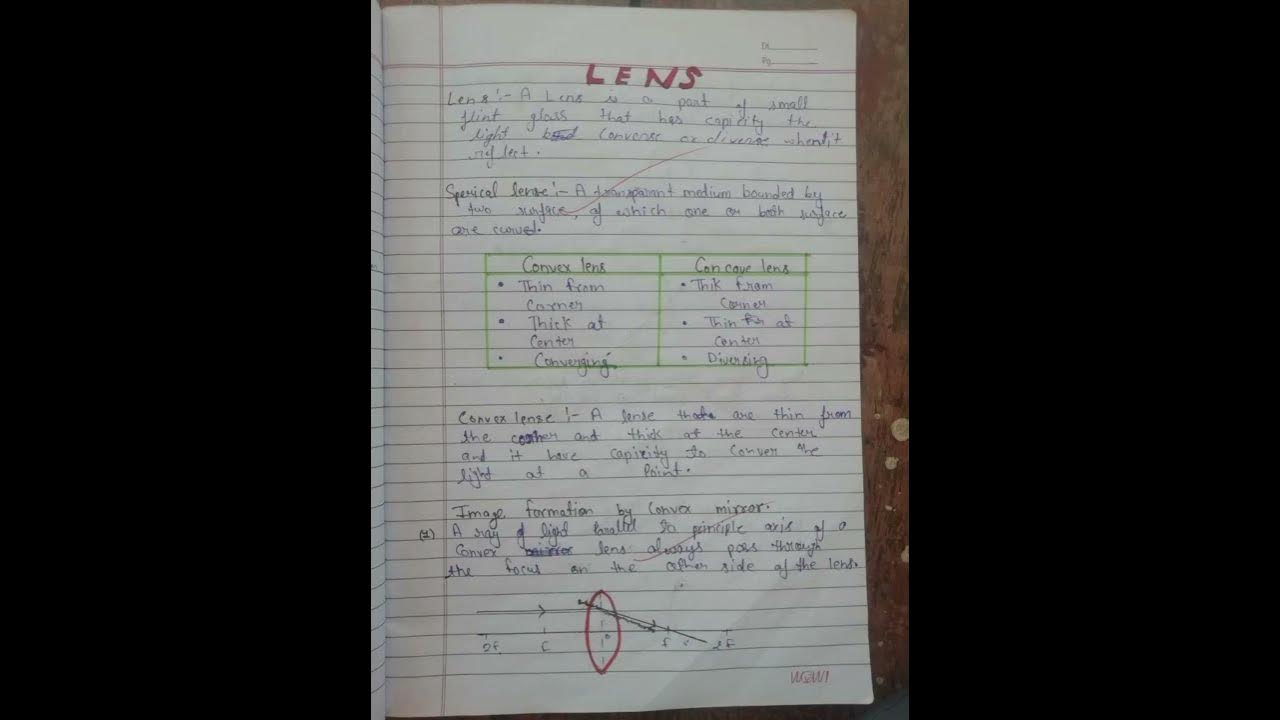 D
Pg
LENS
Lens :- A Lens is a part of small
flint glass that has capicity the
light Convense or diverse when it
reflect.
Sperical lense :- A transparent medium bounded by
two surface, of which one or both surface
are curved.
Convex lens Concave lens
• Thin from • Thik from
Corner Corner
• Thick at • Thin at
Center Center
• Converging • Diversing
Convex lense :- A lense that are thin from
the corner and thick at the center
and it have capicity to conver the
light at a Point.
Image formation by Convex mirror.
(1) A ray of light parallel to principle axis of a
Convex lens always pass through
the focus on the other side of the lens.
2F f o f 2F